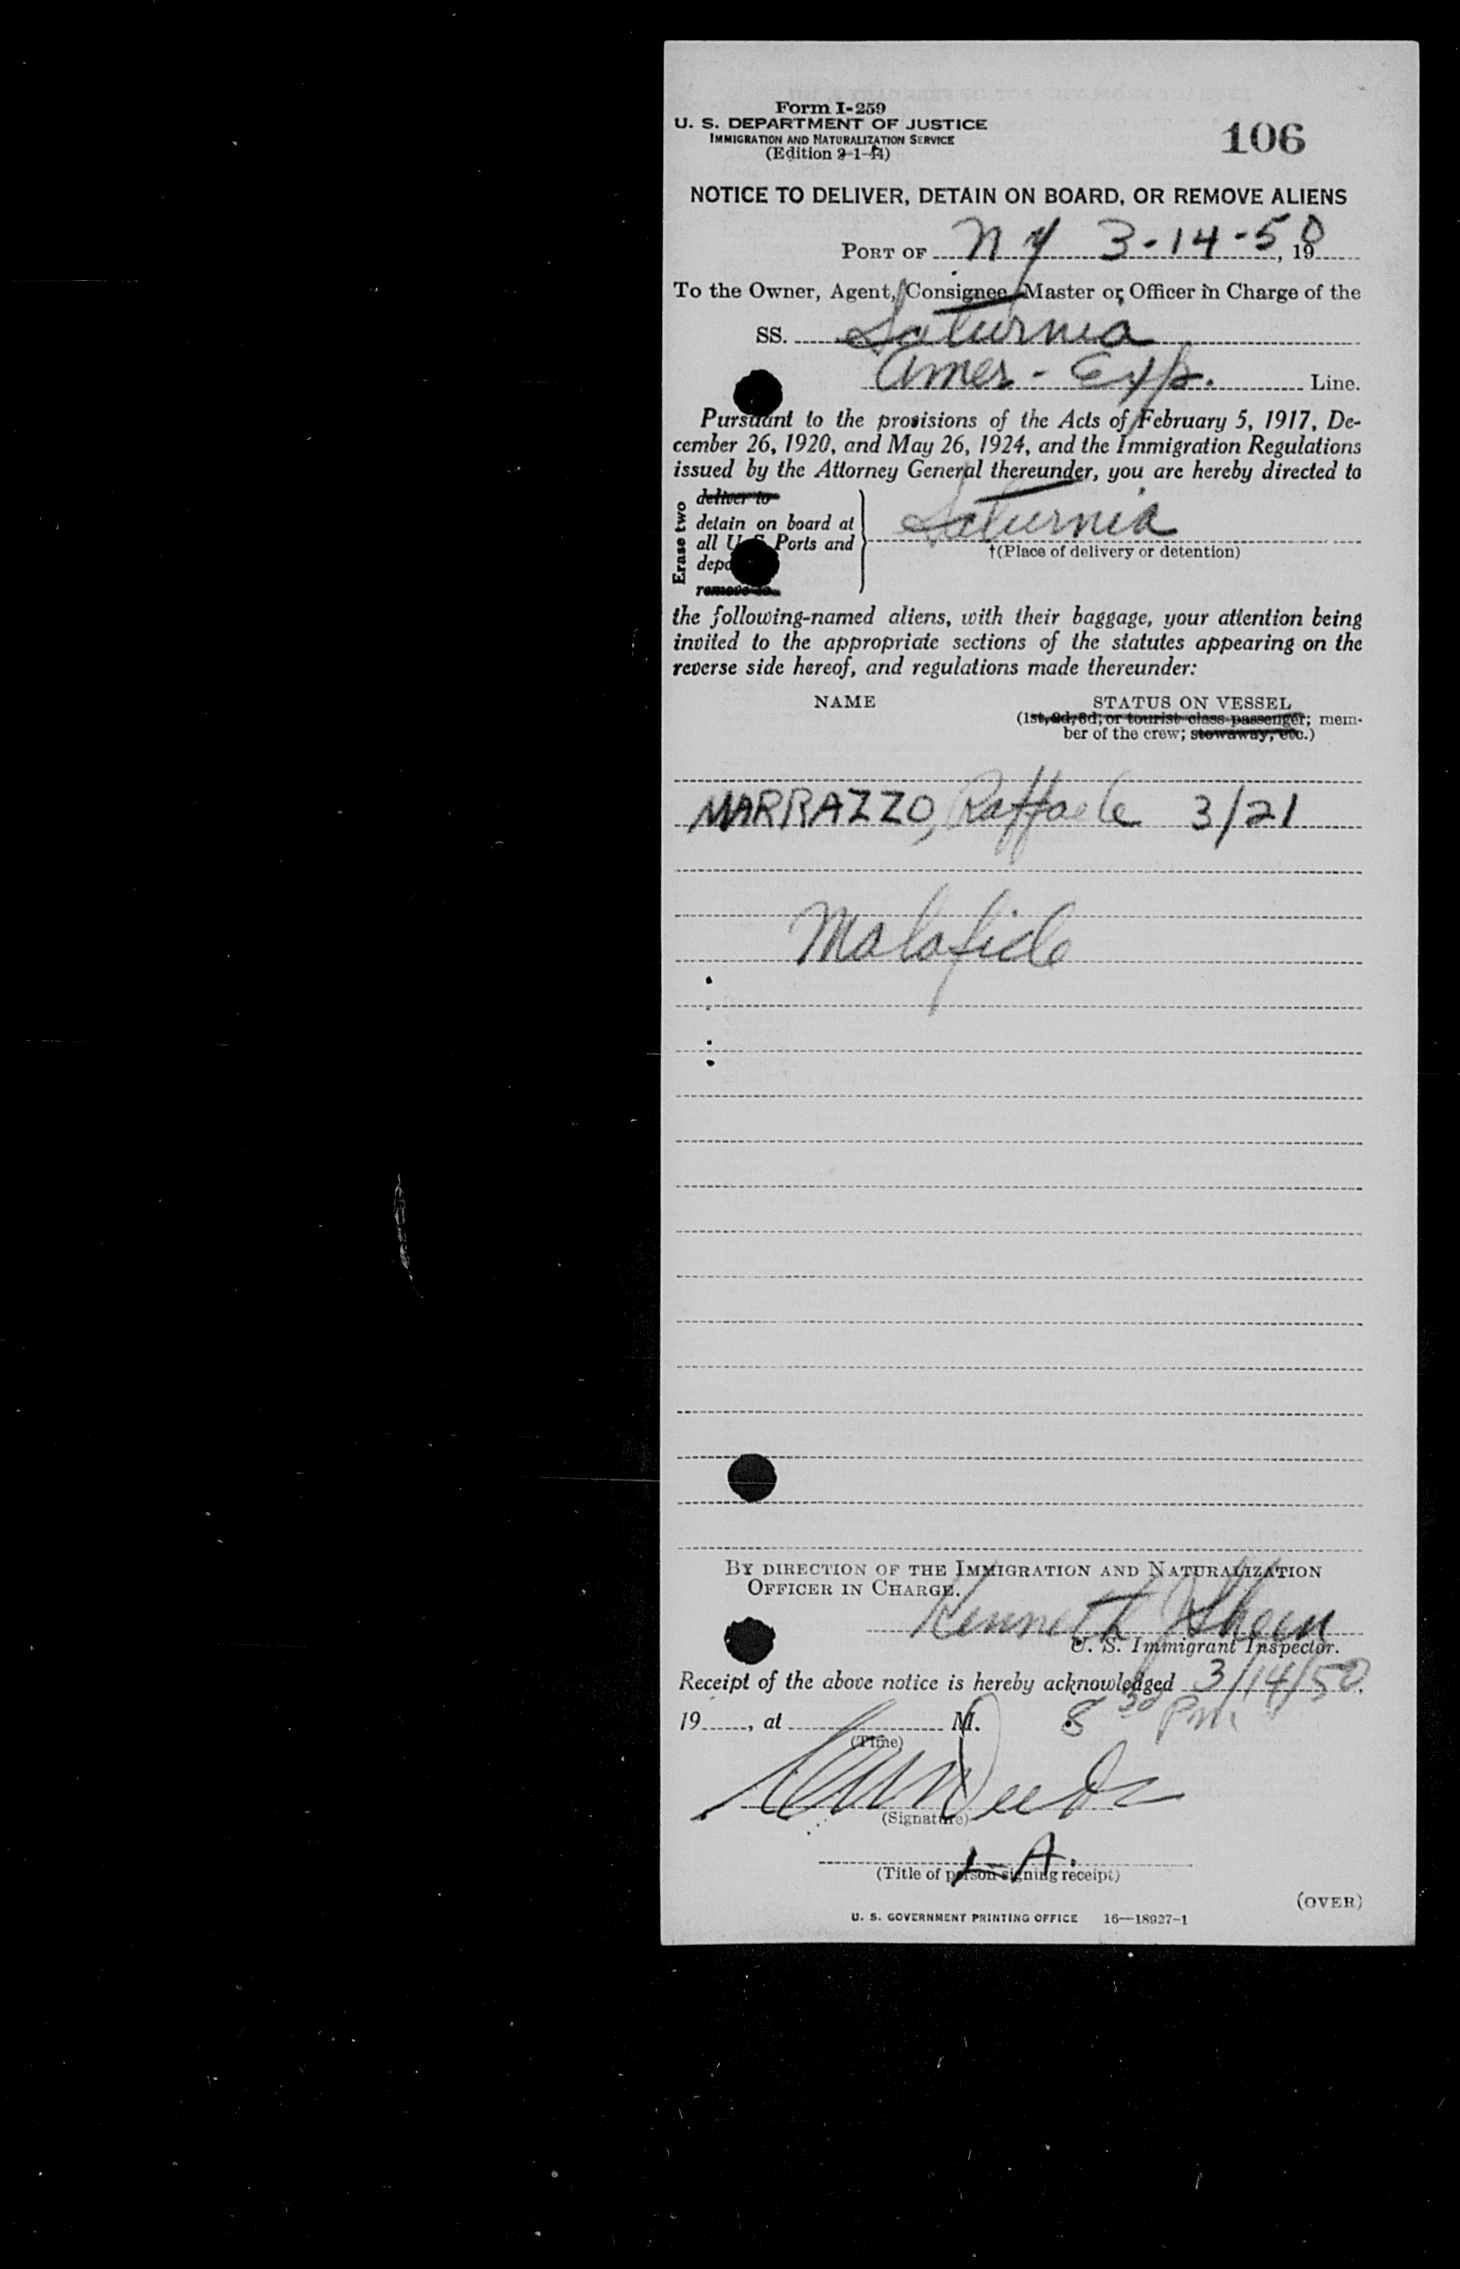 Form I-259
U. S. DEPARTMENT OF JUSTICE
IMMIGRATION AND NATURALIZATION SERVICE
(Edition 2-1-44)
106
NOTICE TO DELIVER, DETAIN ON BOARD, OR REMOVE ALIENS
PORT OF NY 3-14-50, 19
To the Owner, Agent, Consignee, Master or Officer in Charge of the
SS. Saturnia
Amer-Exp. Line.
Pursuant to the provisions of the Acts of February 5, 1917, De-
cember 26, 1920, and May 26, 1924, and the Immigration Regulations
issued by the Attorney General thereunder, you are hereby directed to
Erase two
deliver to
detain on board at
all U S Ports and
depo
remove to
Saturnia
†(Place of delivery or detention)
the following-named aliens, with their baggage, your attention being
invited to the appropriate sections of the statutes appearing on the
reverse side hereof, and regulations made thereunder:
NAME STATUS ON VESSEL
(1st, 2d, 3d, or tourist class passenger; mem-
ber of the crew; stowaway, etc.)
MARRAZZO, Raffaele 3/21
Malafide
BY DIRECTION OF THE IMMIGRATION AND NATURALIZATION
OFFICER IN CHARGE.
Kenneth J Sheen
U. S. Immigrant Inspector.
Receipt of the above notice is hereby acknowledged 3/14/50,
19, at M. 8 30 PM.
(Time)
(Signature)
(Title of person signing receipt)
(OVER)
U. S. GOVERNMENT PRINTING OFFICE 16—18927-1